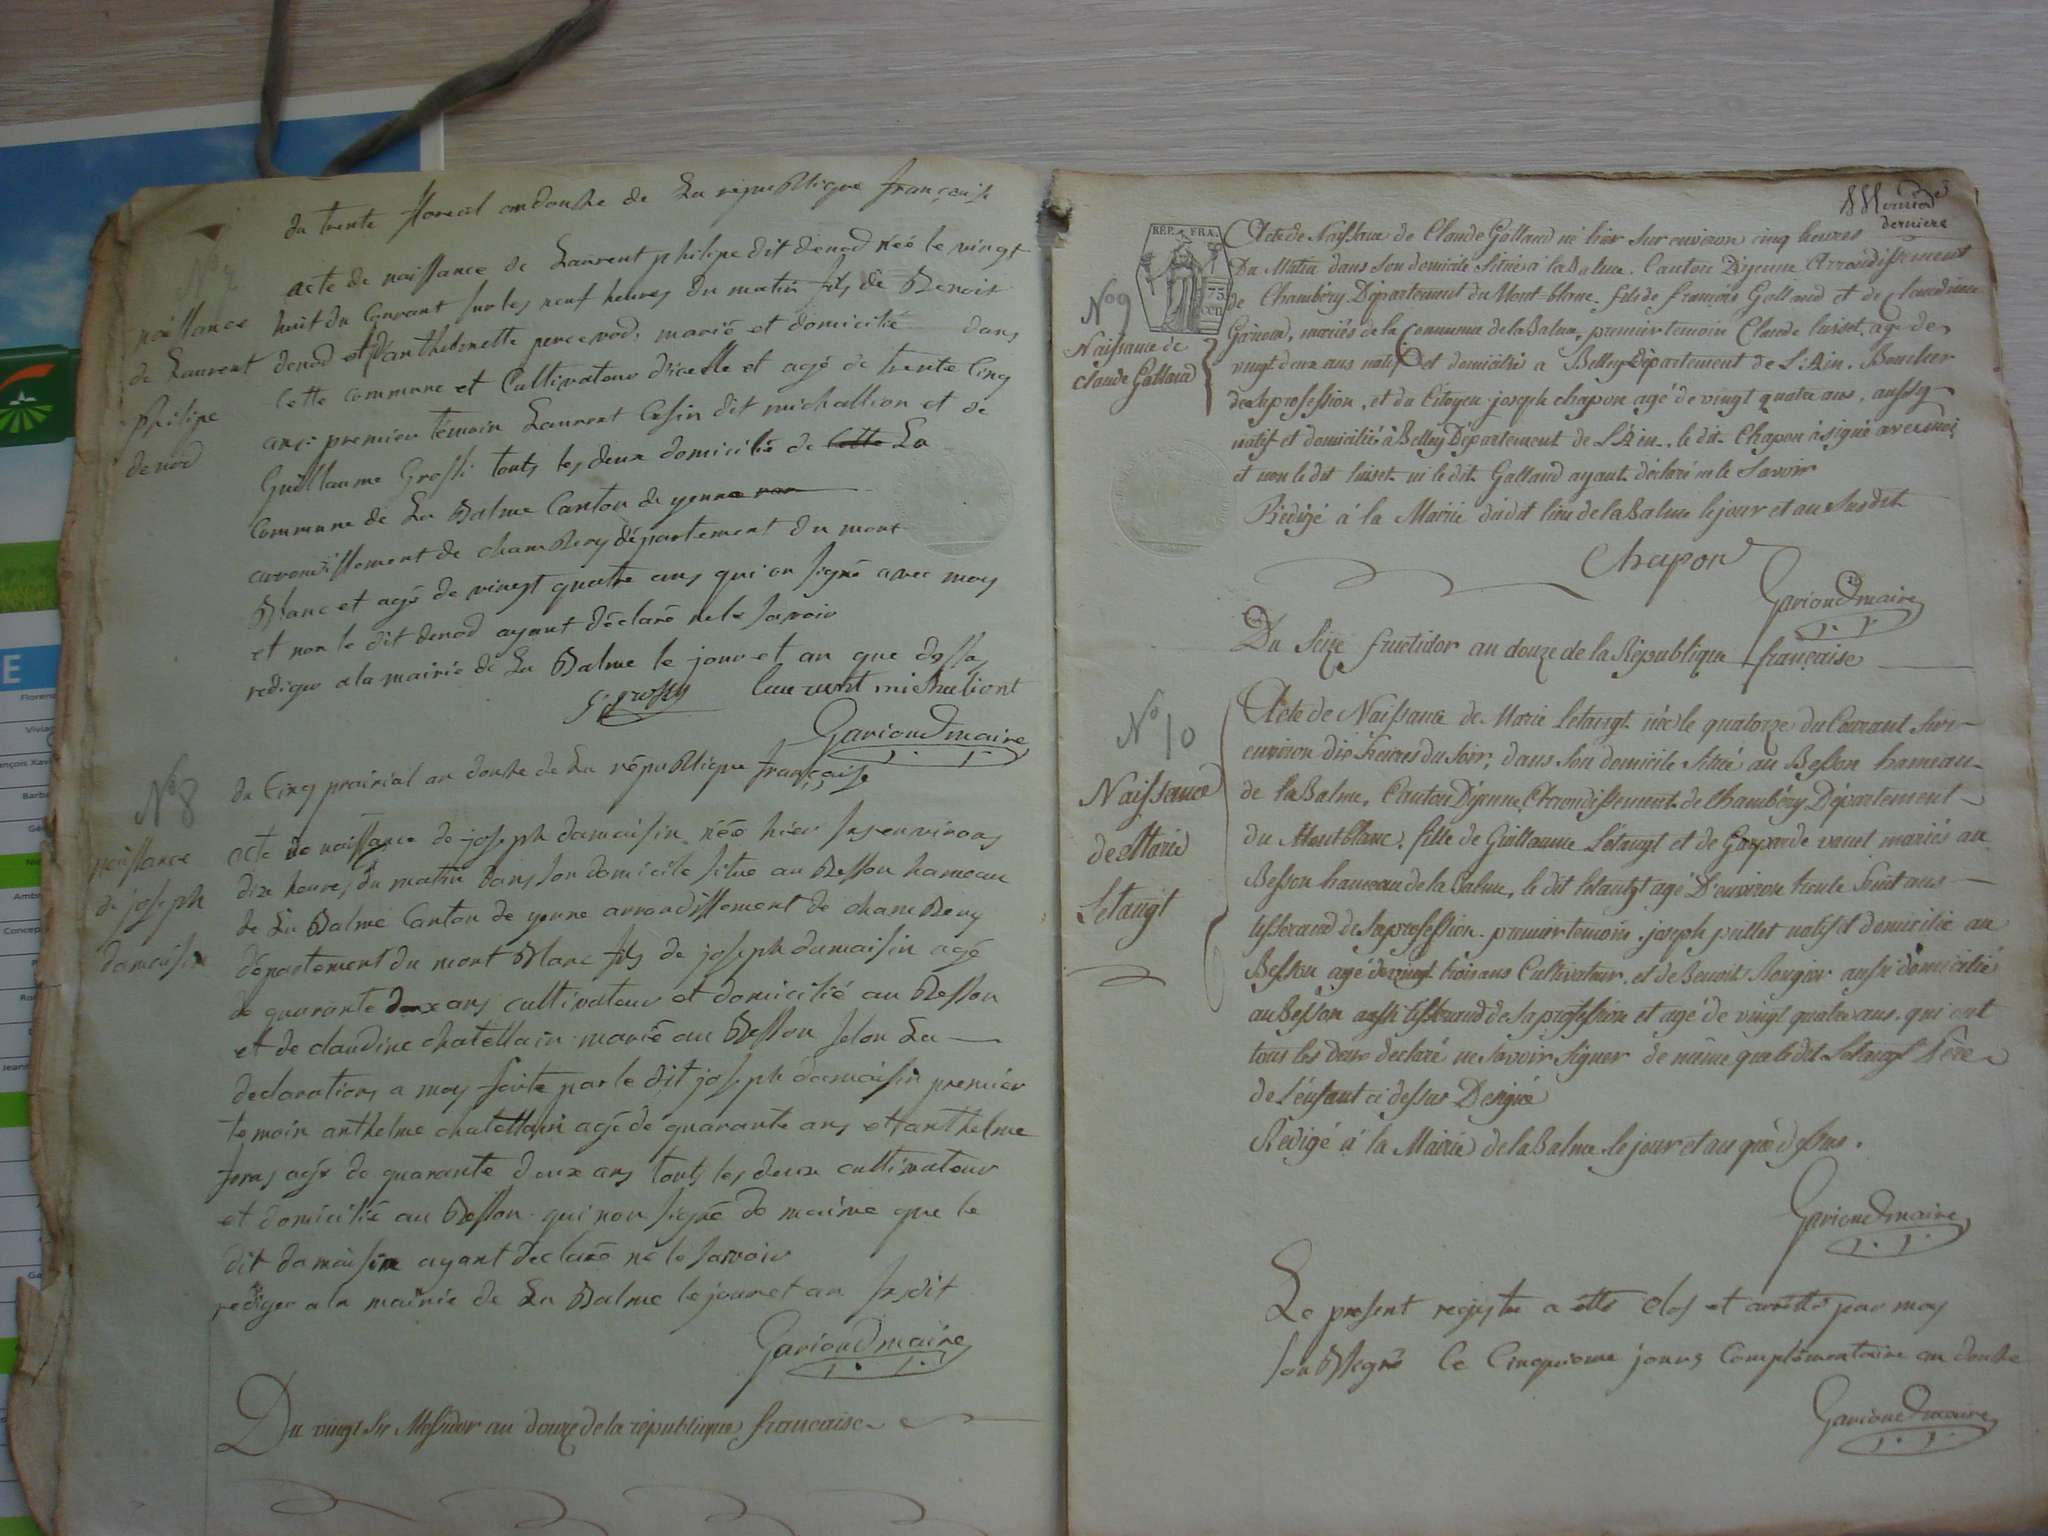 du trente floreal an douse de La république française
N° 7
naissance
de Laurent
philipe
denod
acte de naissance de Laurent philipe dit denod née le vingt
huit du Courant sur les neuf heures du matin fils de Benoit
denod et d'anthelmette percevod, marié et domicilié dans
Cette commune et Cultivateur d'icelle et agé de trente Cinq
ans; premier témoin Laurent Cosin dit michallion et de
Guillaume Grossi touts les deux domicilié de Cette La
Commune de La Balme Canton de yenne
arrondissement de chambery département du mont
Blanc et agé de vingt quatre ans qui on signé avec moy
et non le dit denod ayant déclaré ne le savoir
rediger a la mairie de La Balme le jour et an que dessus
G grossy Laurent michaliont
Gavioud maire
du Cinq prairial an douse de La république française
N° 8
naissance
de joseph
damaisin
acte de naissance de joseph damaisin née hier sur environs
dix heures du matin dans son domicile situé au Besson hameau
de La Balme Canton de yenne arrondissement de chambery
département du mont Blanc fils de joseph damaisin agé
de quarante deux ans cultivateur et domicilié au Besson
et de claudine chatellain marié au Besson selon La
declarations a moy faite par le dit joseph damaisin premier
temoin anthelme chatellain agé de quarante ans et anthelme
foras agé de quarante deux ans touts les deux cultivateur
et domicilié au Besson qui non signé de maime que le
dit damaisin ayant declaré ne le savoir
rediger a la mairie de La Balme le jour et an susdit
Gavioud maire
Du vingt six Messidor an douze de la république française
derniere
RÉP. FRA.
75
CEN
N° 9
Naissance de
claude Gallaud
Acte de Naissance de Claude Gallaud né hier sur environ cinq heures
Du Matin dans son domicile Situé à la Balme. Canton D'yenne Arrondissement
de Chambéry Département du Mont-blanc. fils de françois Gallaud et de Claudine
Grinod, mariés de la Commune de la Balme, premier temoin Claude luiset, agé de
vingt deux ans natif et domicilié a Belley Département de L'Ain. Boucher
de sa profession, et du Citoyen joseph chapon agé de vingt quatre ans, aussy
natif et domicilié à Belley Département de L'Ain. le dit Chapon à signé avec moi,
et non le dit luiset ni le dit Gallaud ayant déclaré ne le Savoir
Rédigé à la Mairie du dit lieu de la Balme le jour et an Susdit
Chapon
Gavioud maire
Du Seize fructidor an douze de la République française
N° 10
Naissance
de Marie
Letaugt
Acte de Naissance de Marie Letaugt née le quatorze du Courant Sur
environ dix heures du Soir, dans Son domicile Situé au Besson hameau
de la Balme, Canton D'yenne, Arrondissement de Chambéry Département
du Montblanc, fille de Guillaume Letaugt et de Gasparde vanel mariés au
Besson hameau de la Balme, le dit letaugt agé D'environ trente huit ans
tisserand de sa profession. premier temoin joseph pullet natif et domicilié au
Besson agé de vingt trois ans Cultivateur. et de Benoit Rougier aussi domicilié
au Besson aussi tisserand de sa profession et agé de vingt quatre ans. qui ont
tous les deux declaré ne Savoir Signer de même que le dit Letaugt Père
de L'enfant ci dessus Designé
Rédigé à la Mairie de la Balme le jour et an que dessus.
Gavioud maire
Le present registre a etté Clos et arretté par moy
sous Ssigné Ce Cinquieme jours Complémentaire an douse
Gavioud maire